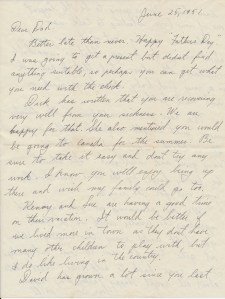 June 25, 1951
Dear Dad:
Better late than never. "Happy Fathers Day"
I was going to get a present but didnt find
anything suitable, so perhaps you can get what
you need with the check.
has written that you are recovering
very well from your sickness. We are
happy for that. She also mentioned you would
be going to for the summer. Be
sure to take it easy and don't try any
work. I know you will enjoy being up
there and wish my family could go too.
and Sue are having a good time
on their vacation. It would be better if
we lived more in town as they dont have
many other children to play with, but
I do like living in the country.
David has grown a lot since you last